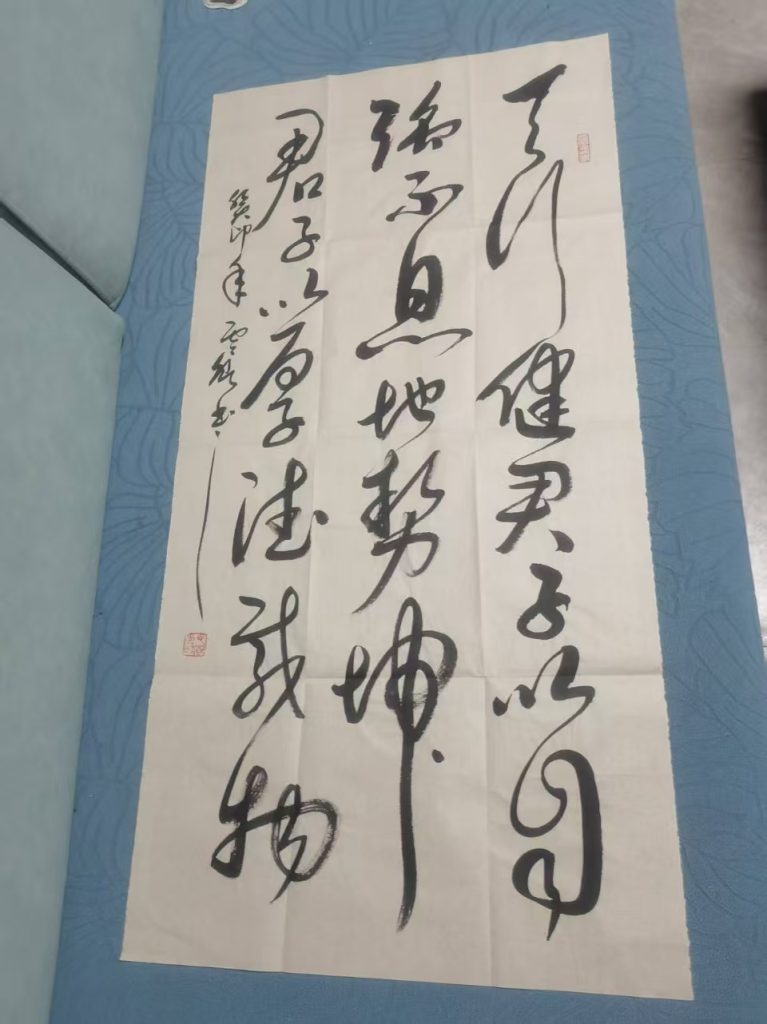 天行健君子以自
强不息地势坤
君子以厚德载物
癸卯年云龙书